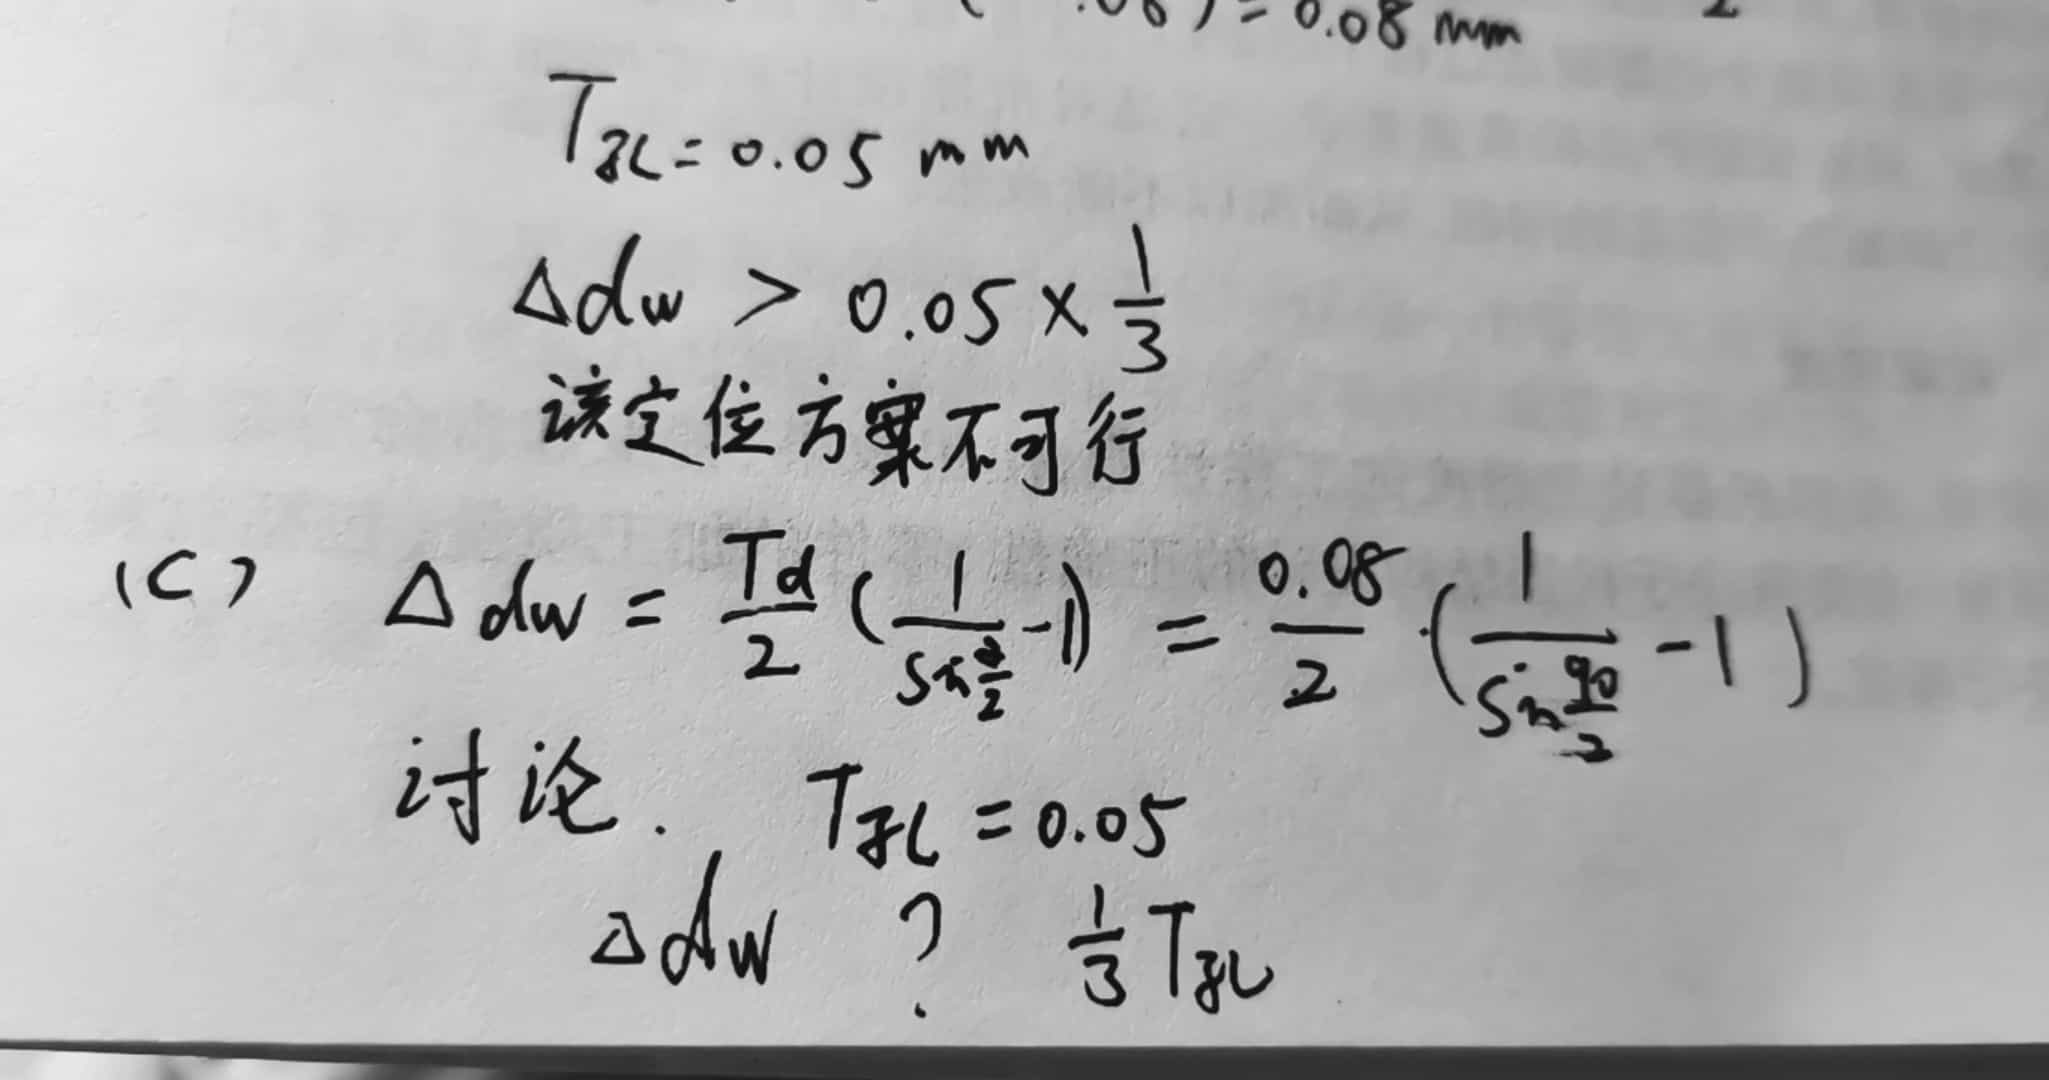 .08) = 0.08 mm 2
T孔 = 0.05 mm
Δdw > 0.05 × 1/3
该定位方案不可行
(C) Δdw = Td/2 (1/sin α/2 - 1) = 0.08/2 · (1/sin 90/2 - 1)
讨论. T孔 = 0.05
Δdw ? 1/3 T孔